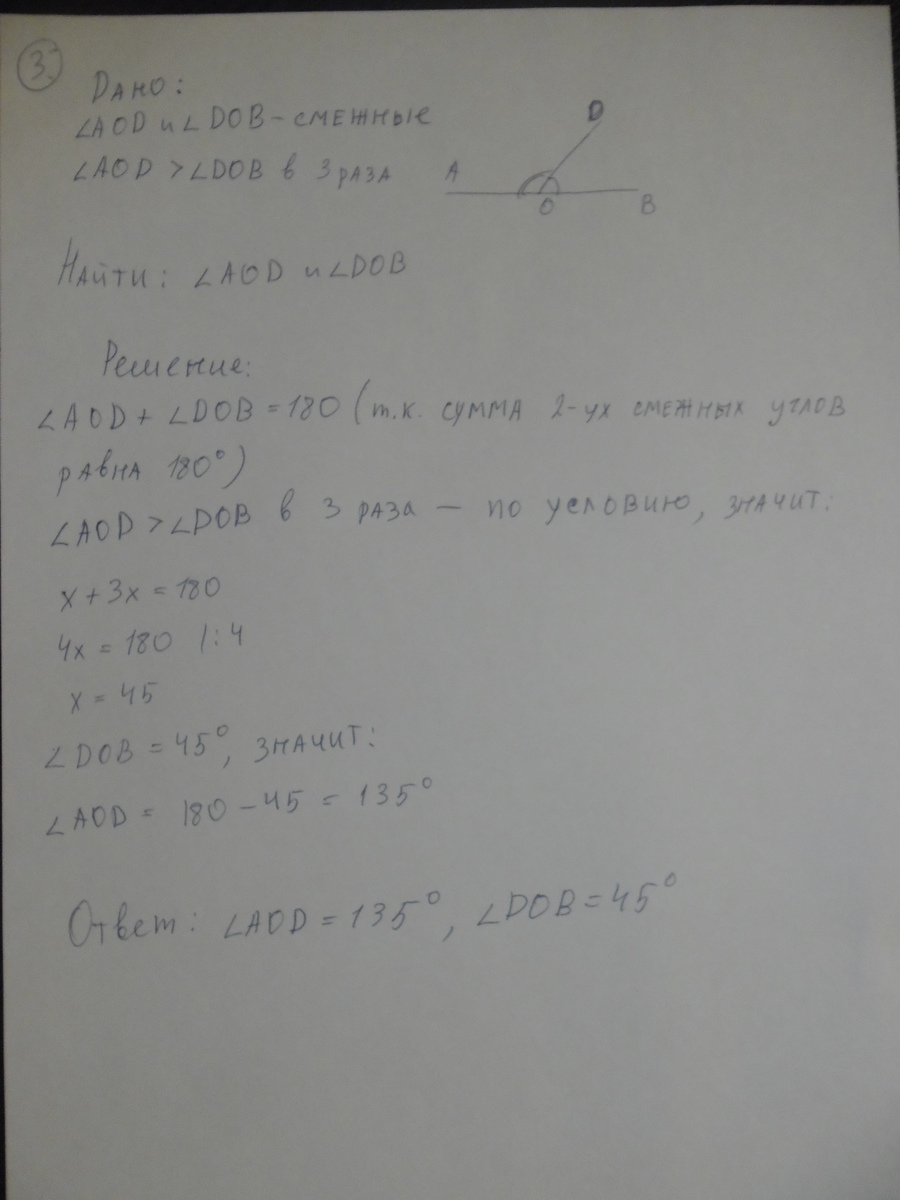 3.
Дано:
∠AOD и ∠DOB - смежные
∠AOD > ∠DOB в 3 раза
D
A
O
B
Найти: ∠AOD и ∠DOB
Решение:
∠AOD + ∠DOB = 180 (т.к. сумма 2-ух смежных углов
равна 180°)
∠AOD > ∠DOB в 3 раза — по условию, значит:
x + 3x = 180
4x = 180 /: 4
x = 45
∠DOB = 45°, значит:
∠AOD = 180 - 45 = 135°
Ответ: ∠AOD = 135°, ∠DOB = 45°